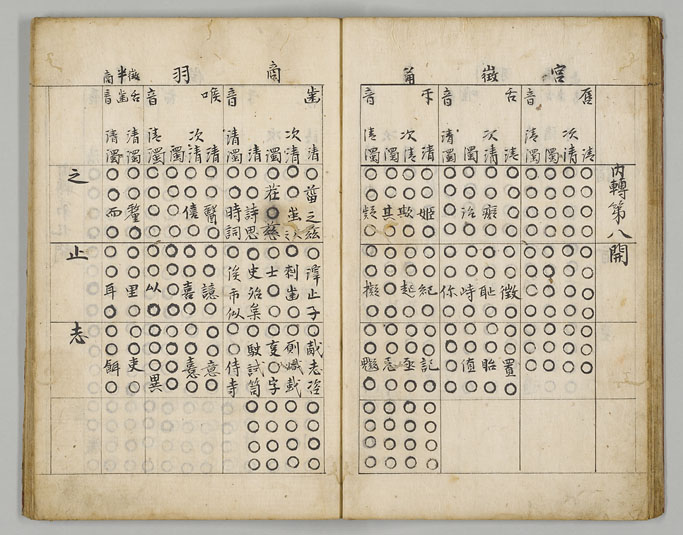 內轉第八開
宮
脣清
次清
濁
音清濁
徵
舌清徵置
次清癡恥眙
濁治峙値
音清濁你
角
牙清姬紀記
次清欺起亟
濁其忌
音清濁疑擬
商
齒清菑之兹滓止子胾志恣
次清蚩剌齒厠熾蛓
濁茌慈士事字
清詩思史始枲駛試笥
音清濁時詞俟市似侍寺
羽
喉清醫譩意
次清僖喜憙
濁
音清濁以異
半徵商
舌清濁釐里吏
齒音清濁而耳餌
之
止
志